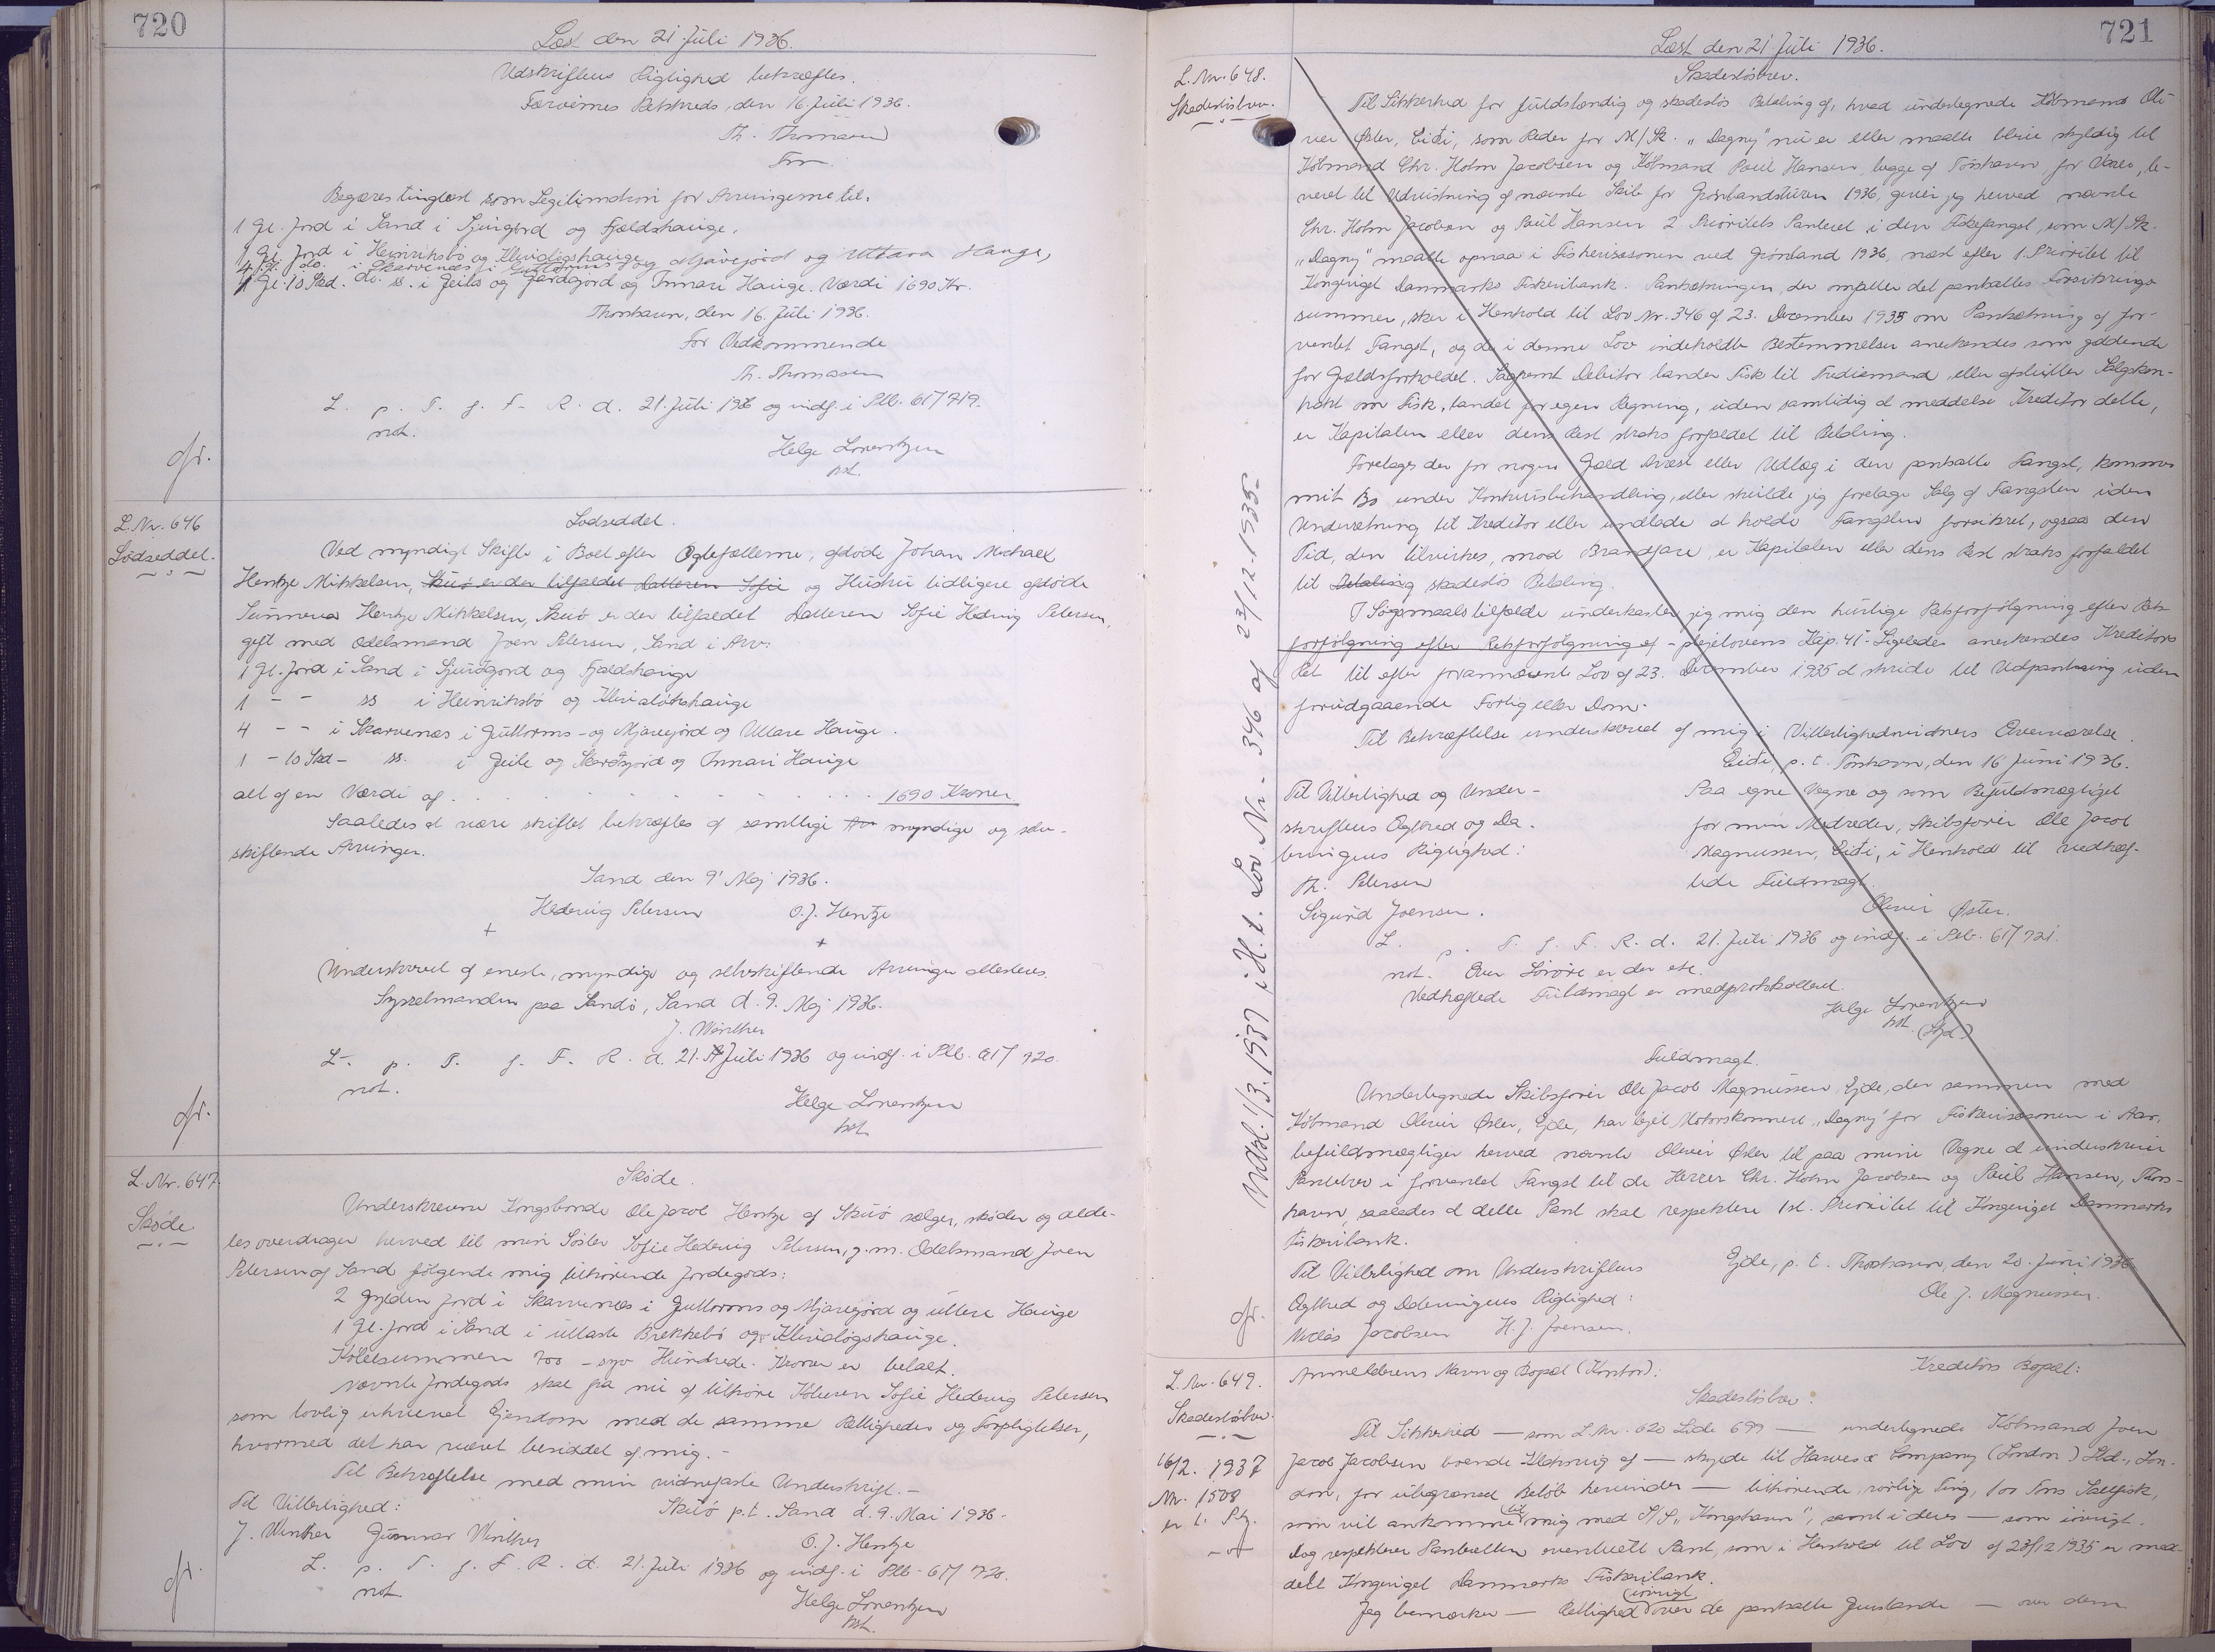 720
Læst den 21 Juli 1936.
Udskriftens Rigtighed bekræftes.
Færøernes Retskreds, den 16. Juli 1936.
Th. Thomassen
Fm.
Begæres tinglæst som Legitimation for Arvingerne til.
1 Gl. Jord i Sand i Sjúrgjørd og Fjældshauge.
1 Gl. Jord i Heinriksbø og Klivaløgshauge
4 Gl. do. i Skarvenæs i Guttorms og Mjávejørd og Uttara Hauge,
1 Gl. 10 Skd. do. ss. i Geila og Gardagjord og Innari Hauge. Værdi 1690 Kr.
Thorshavn, den 16. Juli 1936.
For Vedkommende
Th. Thomassen
L. p. T. f. F. R. d. 21. Juli 1936 og indf. i Ptb. 617 719.
not.
Helge Lorentzen
kst.
L. Nr. 646
Lodseddel.
Lodseddel.
Ved myndigt Skifte i Boet efter Ægtefællerne, afdøde Johan Michael
Hentze Mikkelsen, Skuø er der tilfaldet Datteren Sofie og Hustru tidligere afdøde
Sunneva Hentze Mikkelsen, Skuø er der tilfaldet Datteren Sofie Hedvig Petersen,
gift med Odelsmand Joen Petersen, Sand i Arv:
1 Gl. Jord i Sand i Sjurdgord og Fjældshauge
1 - - ss i Heinriksbø og Klivaløkshauge
4 - - i Skarvenæs i Guttorms- og Mjavejord og Uttare Hauge.
1 - 10 Skd - ss. i Geile og Skardsgjord og Innari Hauge
alt af en Værdi af . . . . . . . . . . 1690 Kroner
Saaledes at være skiftet bekræftes af samtlige Arv myndige og selv-
skiftende Arvinger.
Sand den 9' Maj 1936.
Hedevig Petersen O. J. Hentze
+ +
Underskrevet af eneste, myndige og selvskiftende Arvinger attesteres.
Sysselmanden paa Sandø, Sand d. 9. Maj 1936.
J. Winther
L. p. T. f. F. R. d. 21. Juli 1936 og indf. i Ptb. 617 720.
not.
Helge Lorentzen
kst.
L. Nr. 647
Skøde
Skøde.
Underskrevne Kongsbonde Ole Jacob Hentze af Skuø sælger, skøder og alde-
les overdrager herved til min Søster Sofie Hedevig Petersen, g. m. Odelsmand Joen
Petersen af Sand følgende mig tilhørende Jordegods:
2 Gylden Jord i Skarvenæs i Guttorms og Mjavejord og uttere Hauge
1 Gl. Jord i Sand i uttaste Brekkebø og Klivaløgshauge.
Købesummen 700 - syv Hundrede - Kroner er betalt.
Nævnte Jordegods skal fra nu af tilhøre Køberen Sofie Hedevig Petersen
som lovlig erhvervet Ejendom med de samme Rettigheder og Forpligtelser,
hvormed det har været besiddet af mig. -
Til Bekræftelse med min vidnefaste Underskrift. -
Til Vitterlighed: Skuø p. t. Sand d. 9. Mai 1936.
J. Winther Gunnar Winther O. J. Hentze
L. p. T. f. F. R. d. 21. Juli 1936 og indf. i Ptb. 617 720.
not.
Helge Lorentzen
kst.
721
Læst den 21 Juli 1936.
L. Nr. 648.
Skadesløsbrev.
Skadesløsbrev.
Til Sikkerhed for fuldstændig og skadesløs Betaling af, hvad undertegnede Købmand Oli-
ver Øster, Eiði, som Reder for M/Sk. "Dagny" nu er eller maatte blive skyldig til
Købmand Chr. Holm Jacobsen og Købmand Poul Hansen, begge af Tórshavn for Varer, le-
veret til Udrustning af nævnte Skib for Grønlandsturen 1936, giver jeg herved nævnte
Chr. Holm Jacobsen og Poul Hansen 2 Prioritets Panteret i den Fiskefangst, som M/Sk.
"Dagny" maatte opnaa i Fiskerisæsonen ved Grønland 1936, næst efter 1. Prioritet til
Kongeriget Danmarks Fiskeribank. Pantsætningen, der omfatter det pantsattes Forsikrings-
summer, sker i Henhold til Lov Nr. 346 af 23. December 1935 om Pantsætning af for-
ventet Fangst, og de i denne Lov indeholdte Bestemmelser anerkendes som gældende
for Gældsforholdet. Saafremt Debitor lander Fisk til Trediemand eller afslutter Salgskon-
trakt om Fisk, landet for egen Regning, uden samtidig at meddele Kreditor dette,
er Kapitalen eller dens Rest straks forfaldet til Betaling.
Foretages der for nogen Gæld Arrest eller Udlæg i den pantsatte Fangst, kommer
mit Bo under Konkursbehandling, eller skulde jeg foretage Salg af Fangsten uden
Underretning til Kreditor eller undlade at holde Fangsten forsikret, ogsaa den
Tid, den tilvirkes, mod Brandfare, er Kapitalen eller dens Rest straks forfaldet
til Betaling skadesløs Betaling.
I Søgsmaalstilfælde underkaster jeg mig den hurtige Retsforfølgning efter Rets-
forfølgning efter Retsforfølgning af -plejelovens Kap. 41 - Ligeledes anerkendes Kreditors
Ret til efter forannævnte Lov af 23. December 1935 at skride til Udpantning uden
forudgaaende Forlig eller Dom.
Til Bekræftelse underskrevet af mig i Vitterlighedsvidners Overværelse.
Eiði, p. t. Tórshavn, den 16 Juni 1936.
Til Vitterlighed og Under-
skriftens Ægthed og Da-
teringens Rigtighed:
Th. Petersen
Sigurd Joensen.
Paa egne Vegne og som Befuldmægtiget
for min Medreder, Skibsfører Ole Jacob
Magnussen, Eiði, i Henhold til vedhæf-
tede Fuldmagt.
Oliver Øster.
L. p. T. f. F. R. d. 21. Juli 1936 og indf. i Ptb. 617 721.
not. Over Løsøre er der etc.
Vedhæftede Fuldmagt er medprotokolleret.
Helge Lorentzen
kst.
Fuldmagt.
Undertegnede Skibsfører Ole Jacob Magnussen, Ejde, der sammen med
Købmand Oliver Øster, Ejde, har lejet Motorskonnert "Dagny" for Fiskerisæsonen i Aar,
befuldmægtiger herved nævnte Oliver Øster til paa mine Vegne at underskrive
Pantebrev i forventet Fangst til de Herrer Chr. Holm Jacobsen og Poul Hansen, Thors-
havn, saaledes at dette Pant skal respektere 1st. Prioritet til Kongeriget Danmarks
Fiskeribank.
Ejde, p. t. Thorshavn, den 20. Juni 1936
Ole J. Magnussen.
Til Vitterlighed om Underskriftens
Ægthed og Dateringens Rigtighed:
Niclas Jacobsen H. J. Joensen.
Udsl. 1/3. 1937 i H. t. Lov Nr. 346 af 23/12. 1935-
L. Nr. 649.
Skadesløsbrev.
16/2. 1937
Nr. 1508
Anmelderens Navn og Bopæl (Kontor): Kreditors Bopæl:
Skadesløsbrev:
Til Sikkerhed — som L. Nr. 620 Side 699 — undertegnede Købmand Joen
Jacob Jacobsen boende Klaksvig af — skyldt til Hawes & Company (London) Ltd., Lon-
don, for ubegrænset Beløb herunder — tilhørende rørlige Ting, 100 Tons Saltfisk,
som vil ankomme til mig med S/S "Kongshavn", samt i deres — som iøvrigt.
Dog respekterer Panteretten eventuelt Pant, som i Henhold til Lov af 23/12 1935 er med-
delt Kongeriget Danmarks Fiskeribank.
Jeg bemærker — Rettighed iøvrigt over de pantsatte Genstande — over dem